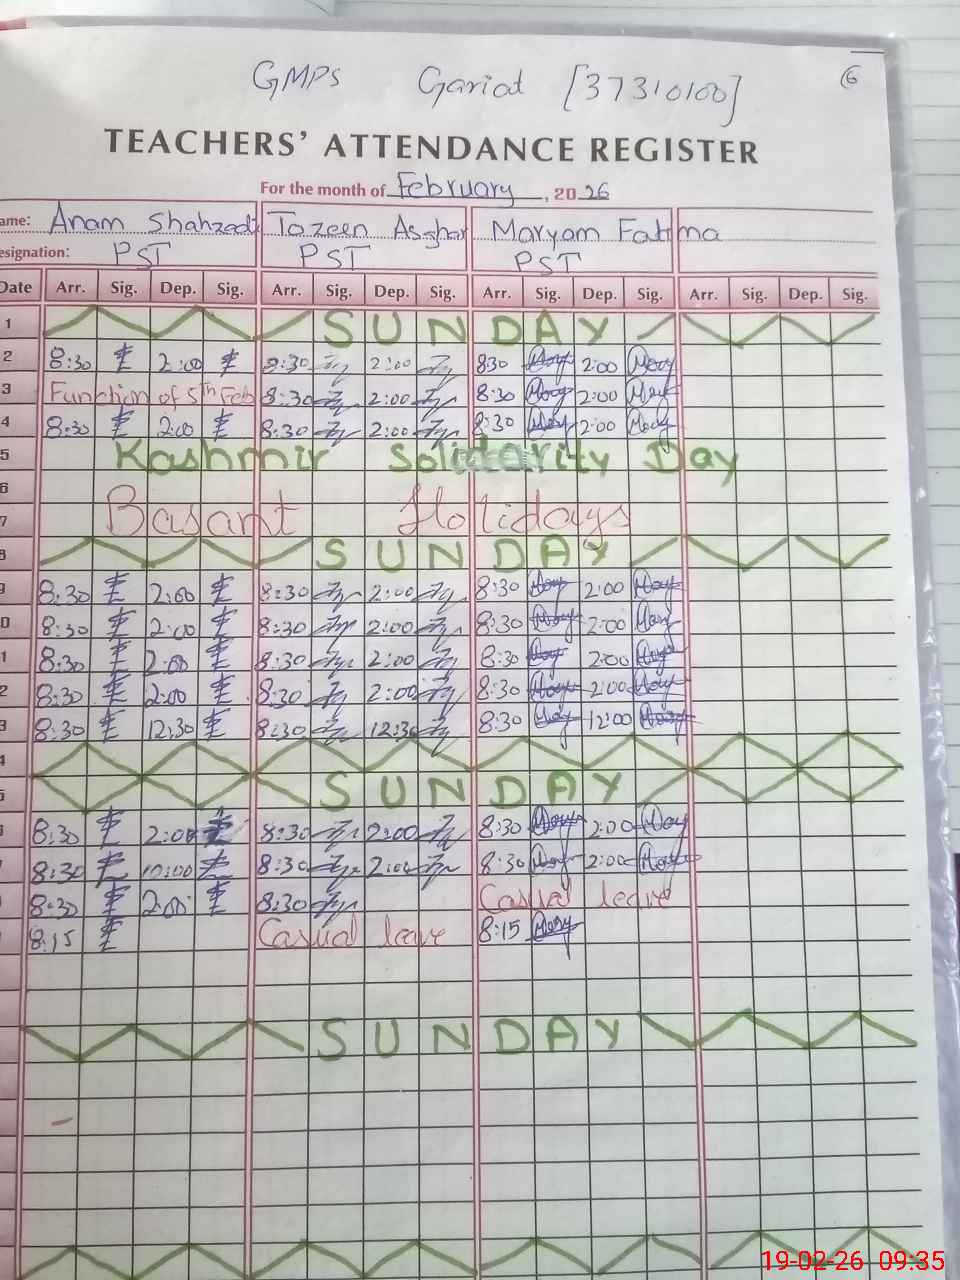 GMPS Gariat [37310100] 6
TEACHERS' ATTENDANCE REGISTER
For the month of February, 2026
ame: Anam Shahzadi Tazeen Asghar Maryam Fatima
esignation: PST PST PST
Date Arr. Sig. Dep. Sig. Arr. Sig. Dep. Sig. Arr. Sig. Dep. Sig. Arr. Sig. Dep. Sig.
1 SUNDAY
2 8:30 2:00 8:30 2:00 8:30 2:00
3 Function of 5th Feb 8:30 2:00 8:30 2:00
4 8:30 2:00 8:30 2:00 8:30 2:00
5 Kashmir Solidarity Day
6
7 Basant Holidays
8 SUNDAY
9 8:30 2:00 8:30 2:00 8:30 2:00
0 8:30 2:00 8:30 2:00 8:30 2:00
1 8:30 2:00 8:30 2:00 8:30 2:00
2 8:30 2:00 8:30 2:00 8:30 2:00
3 8:30 12:30 8:30 12:30 8:30 12:00
4
5 SUNDAY
8:30 2:00 8:30 2:00 8:30 2:00
8:30 10:00 8:30 2:00 8:30 2:00
8:30 2:00 8:30 Casual leave
8:15 Casual leave 8:15
SUNDAY
19-02-26 09:35